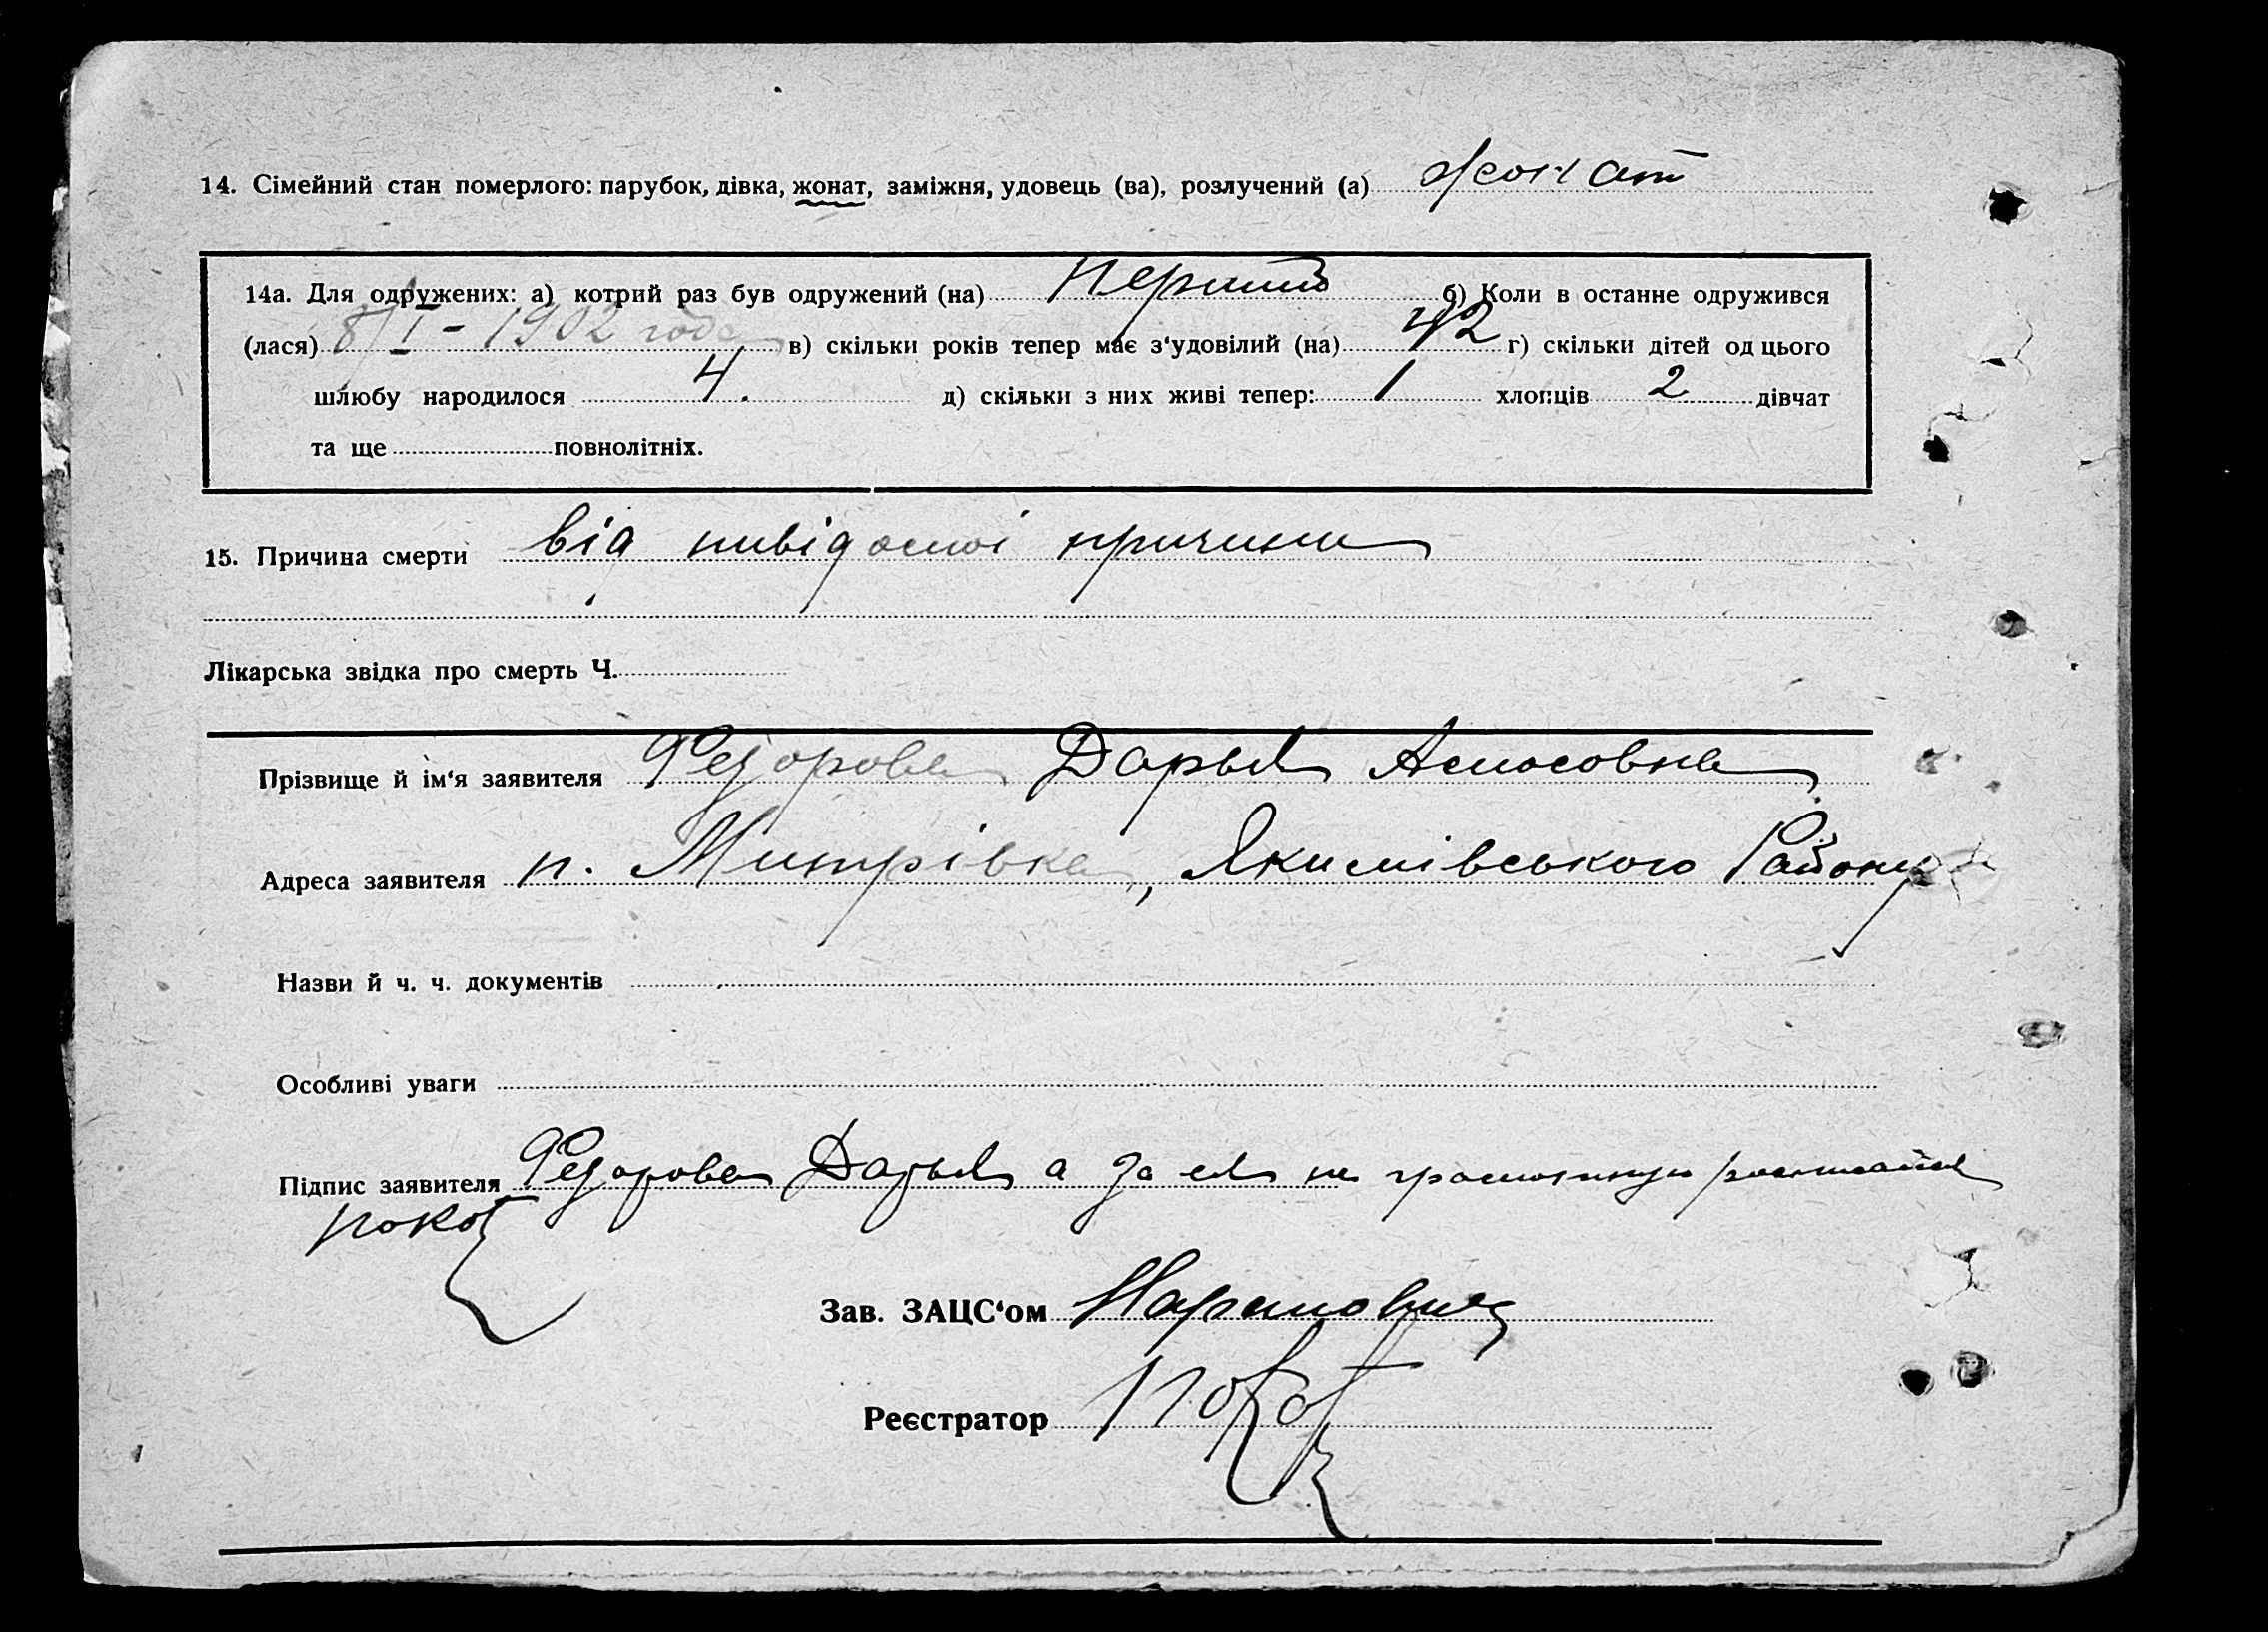 14. Сімейний стан померлого: парубок, дівка, жонат, заміжня, удовець (ва), розлучений (а) жонат
14а. Для одружених: а) котрий раз був одружений (на) перший б) Коли в останне одружився
(лася) 8/I - 1902 года в) скільки років тепер має з‘удовілий (на) 42 г) скільки дітей од цього
шлюбу народилося 4. д) скільки з них живі тепер: 1 хлопців 2 дівчат
та ще повнолітніх.
15. Причина смерти від невідомої причини
Лікарська звідка про смерть Ч.
Прізвище й ім‘я заявителя Федорова Дарья
Адреса заявителя п. Митрівка, Якимівського Району
Назви й ч. ч. документів
Особливі уваги
Підпис заявителя Федорова Дарья а за ея не грамотную
Зав. ЗАЦС‘ом
Реєстратор